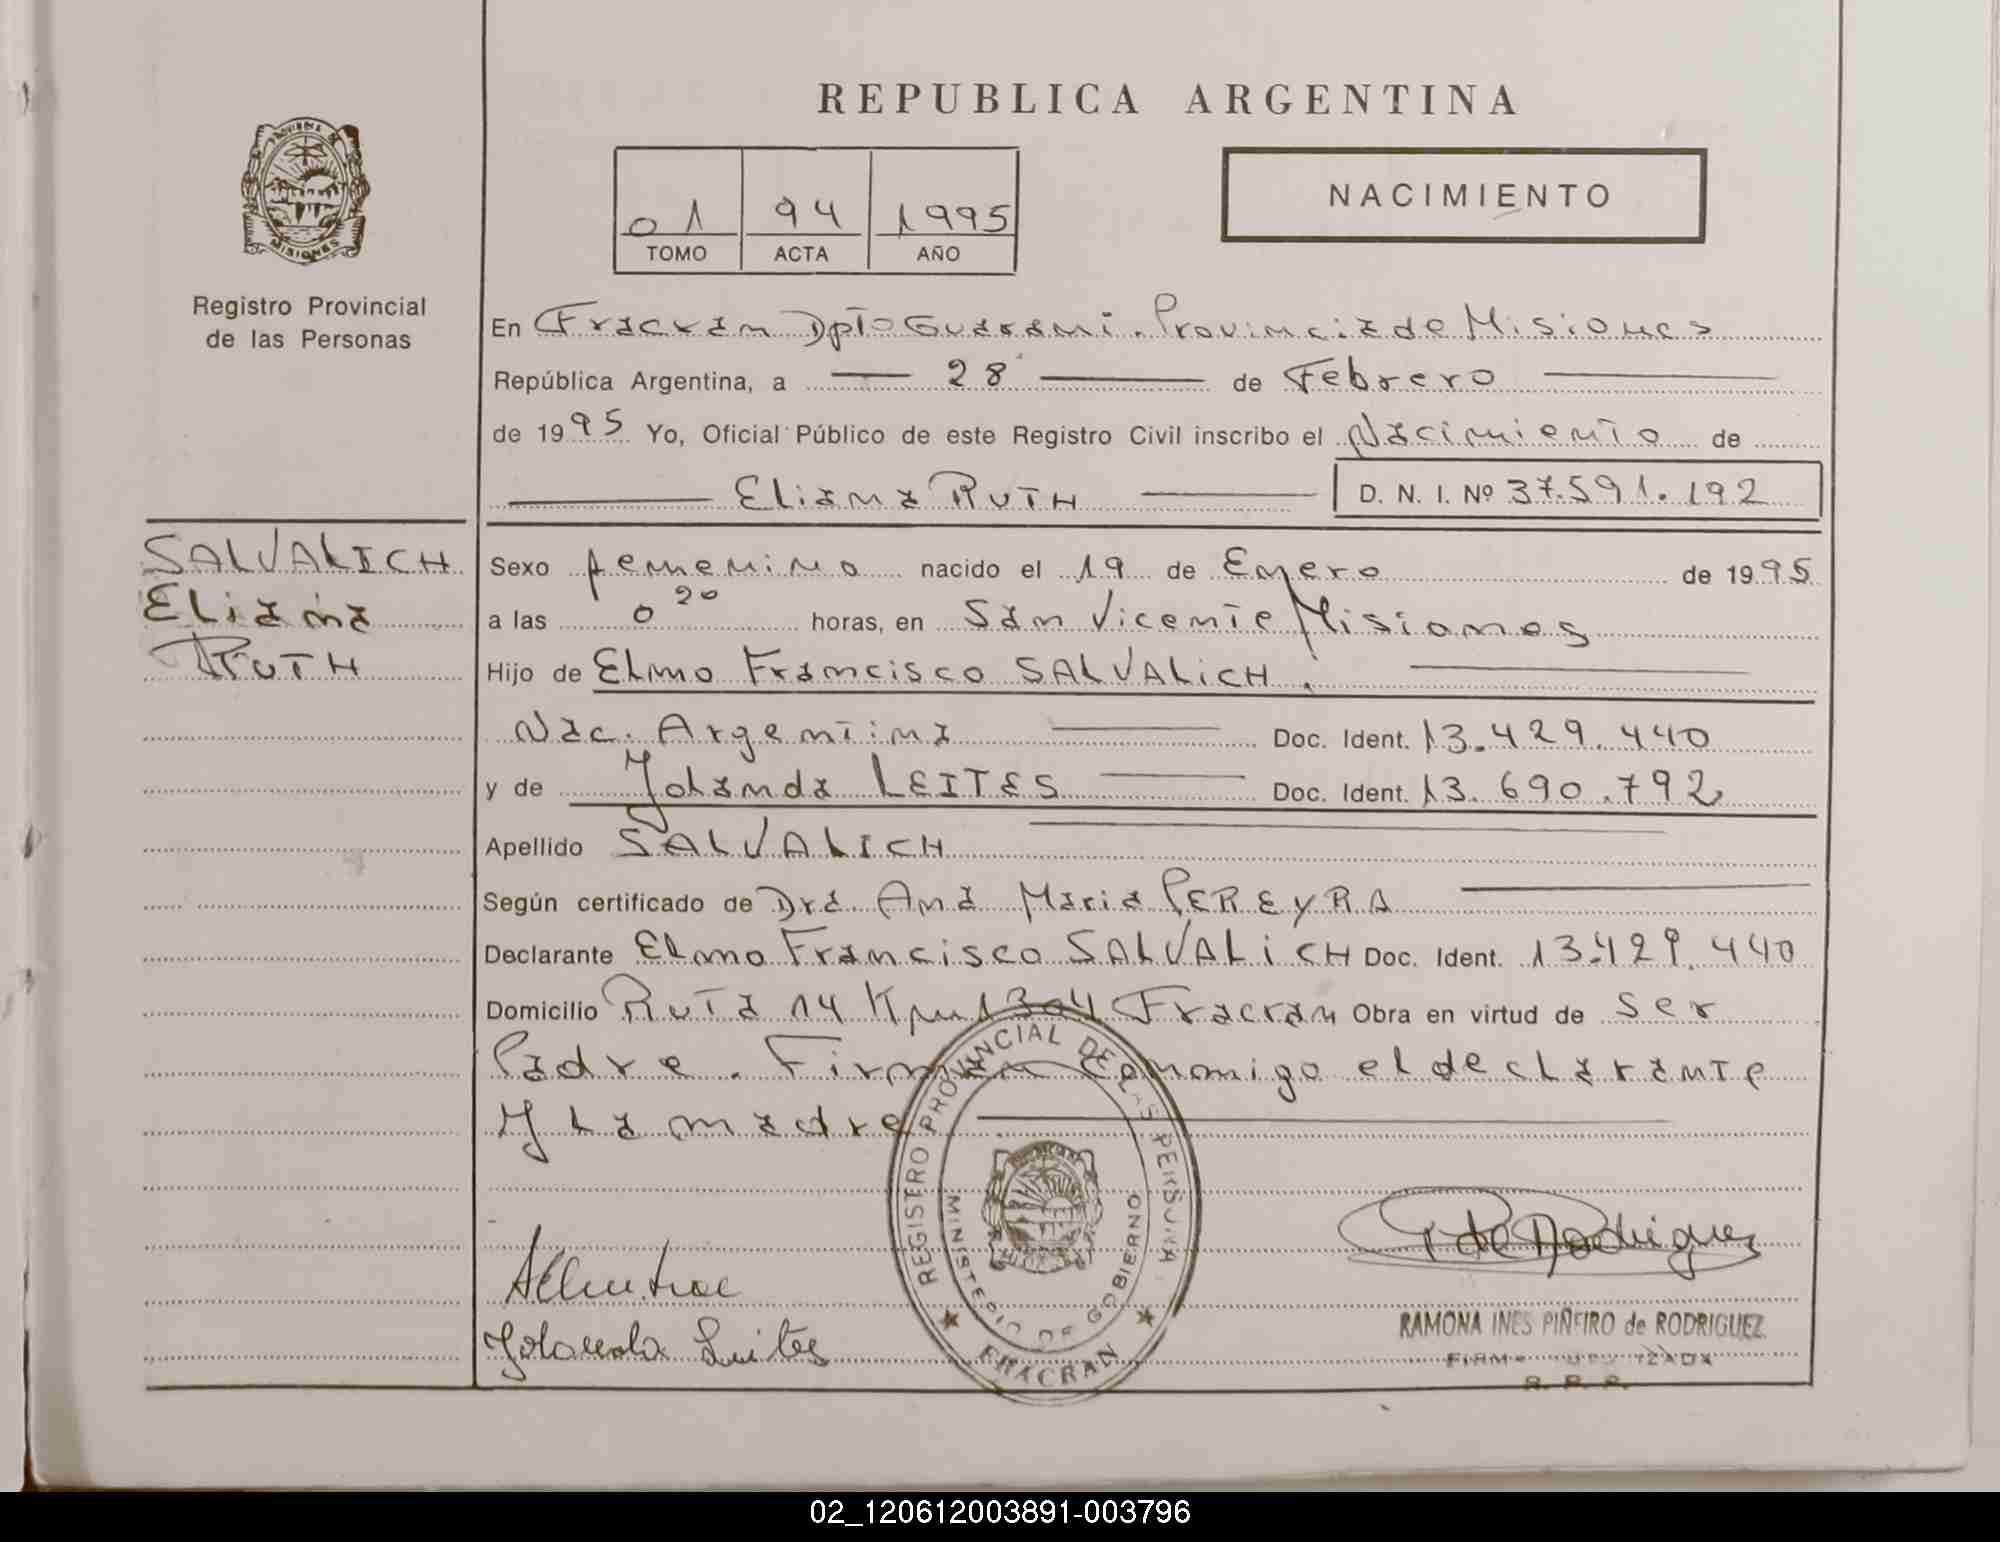 REPUBLICA ARGENTINA
PROVINCIA DE
MISIONES
Registro Provincial
de las Personas
01 94 1995
TOMO ACTA AÑO
NACIMIENTO
En Fracran Dpto Guarani. Provincia de Misiones
República Argentina, a 28 de Febrero
de 1995 Yo, Oficial Público de este Registro Civil inscribo el Nacimiento de
Eliana RUTH D. N. I. Nº 37.591.192
SALVALICH
Eliana
RUTH
Sexo femenino nacido el 19 de Enero de 1995
a las 0 20 horas, en San Vicente Misiones
Hijo de Elmo Francisco SALVALiCH.
Nac. Argentina Doc. Ident. 13.429.440
y de Yolanda LEITES Doc. Ident. 13.690.792
Apellido SALVALICH
Según certificado de Dra. Ana Maria PEREYRA
Declarante Elmo Francisco SALVALiCH Doc. Ident. 13.429.440
Domicilio Ruta 14 Km 1304 Fracran Obra en virtud de ser
Padre. Firman Conmigo el declarante
y la madre
REGISTRO PROVINCIAL DE LAS PERSONAS
MINISTERIO DE GOBIERNO
FRACRAN
P de Rodriguez
Yolanda Leites
RAMONA INES PIÑEIRO de RODRIGUEZ
R. P. P.
02_120612003891-003796